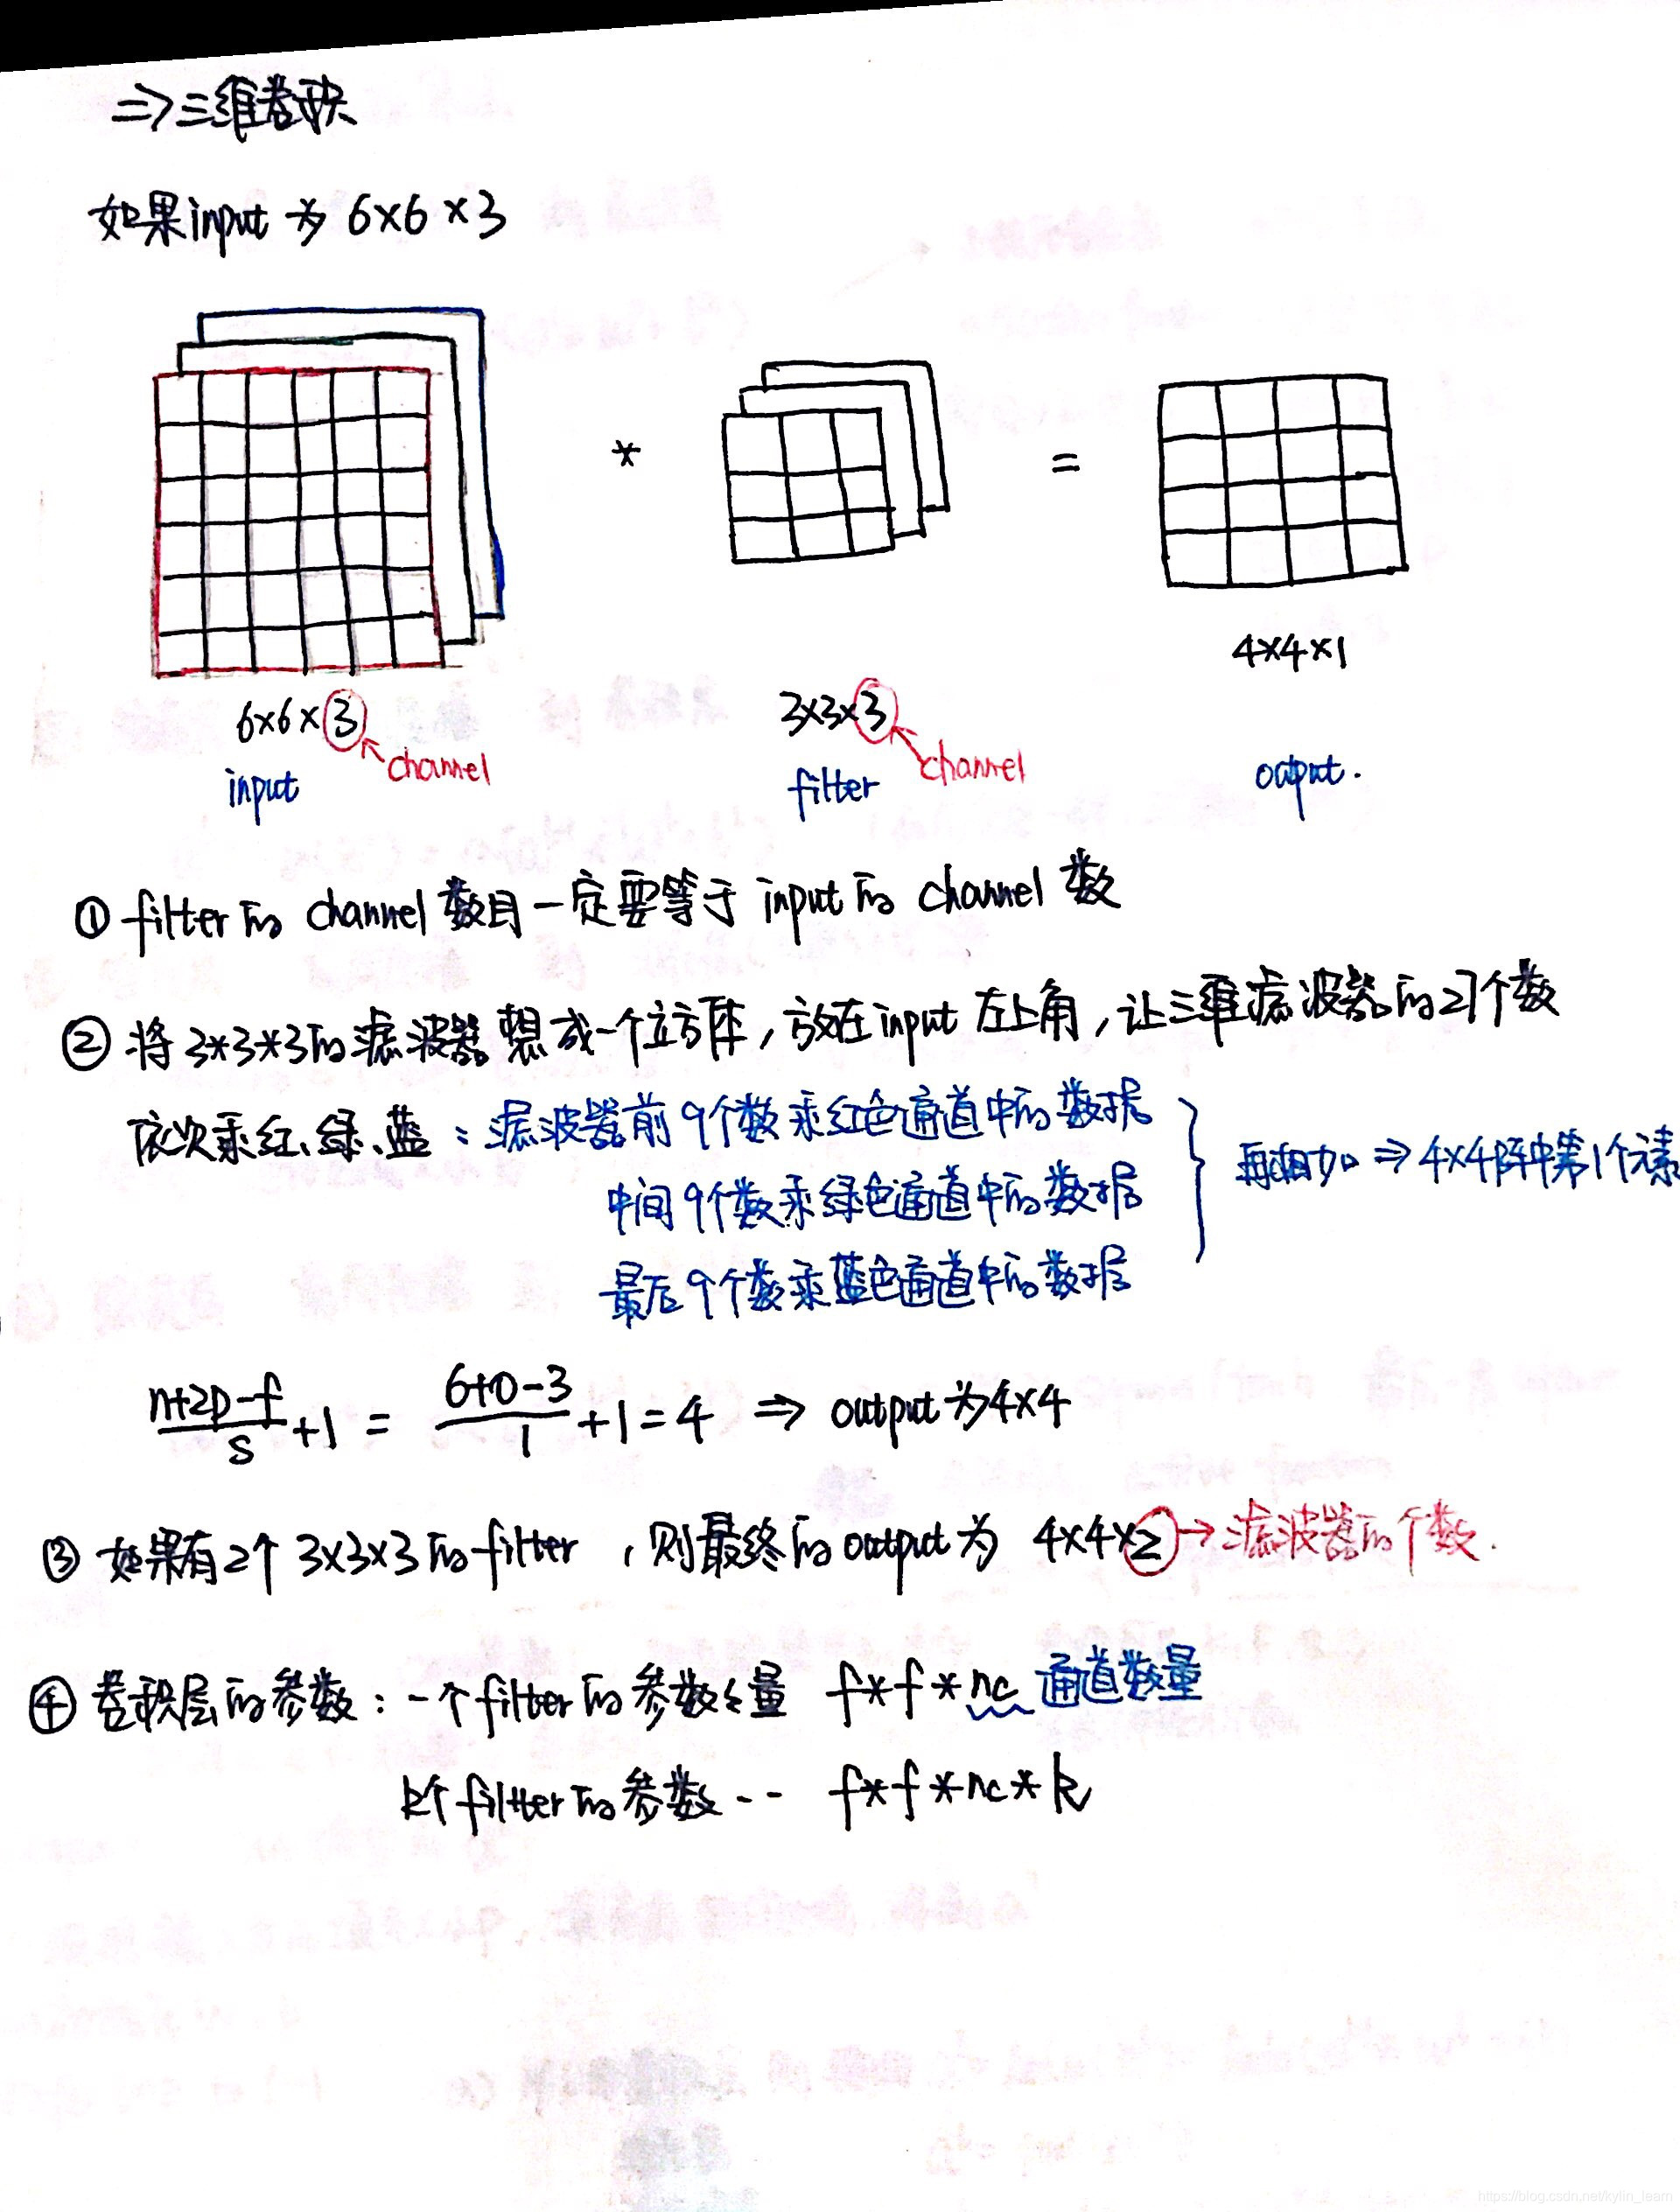 ⇒三维卷积
如果input为 6×6×3
* =
4×4×1
6×6×3 3×3×3
channel channel
input filter output.
① filter的 channel 数目一定要等于 input的 channel 数
② 将3*3*3的滤波器想成一个立方体,放在input左上角,让三维滤波器的27个数
依次乘红、绿、蓝:滤波器前9个数乘红色通道中的数据
中间9个数乘绿色通道中的数据
再相加⇒4×4阵中第1个元素
最后9个数乘蓝色通道中的数据
(n+2p-f)/s +1 = (6+0-3)/1 +1=4 ⇒ output为4×4
③ 如果有2个 3×3×3的filter ,则最终的output为 4×4×2→滤波器的个数.
④ 卷积层的参数:一个filter的参数量 f*f*nc 通道数量
k个filter的参数-- f*f*nc*k
https://blog.csdn.net/kylin_learn